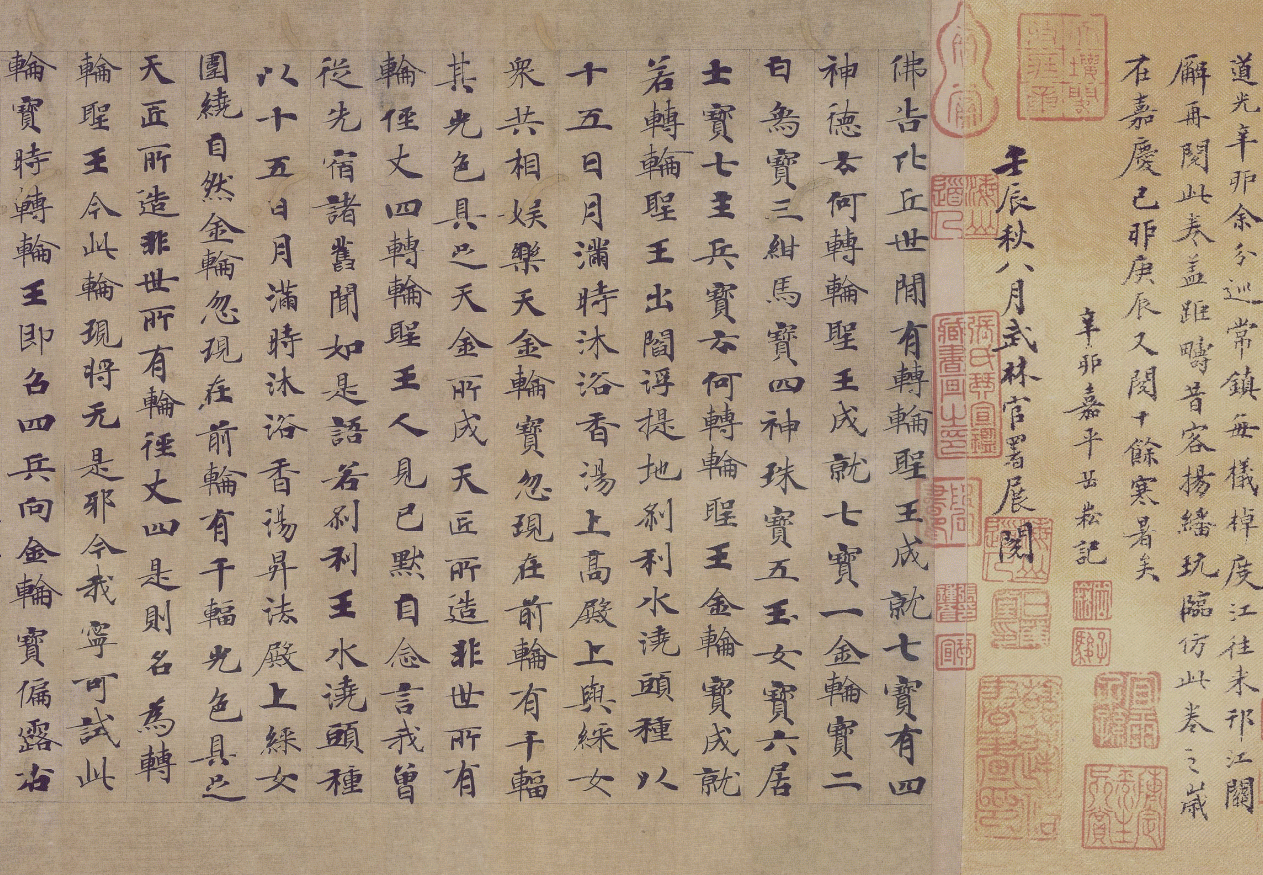 道光辛卯余分巡常鎮每檥棹度江往来邗江關
廨再閱此卷蓋距疇昔客揚繙玩臨仿此卷之歲
在嘉慶己卯庚辰又閱十餘寒暑矣
辛卯嘉平岳崧記
壬辰秋八月武林官署展閱
佛告比丘世間有轉輪聖王成就七寶有四
神德云何轉輪聖王成就七寶一金輪寶二
白象寶三紺馬寶四神珠寶五玉女寶六居
士寶七主兵寶云何轉輪聖王金輪寶成就
若轉輪聖王出閻浮提地剎利水澆頭種以
十五日月滿時沐浴香湯上高殿上與婇女
眾共相娛樂天金輪寶忽現在前輪有千輻
其光色具足天金所成天匠所造非世所有
輪徑丈四轉輪聖王人見已默自念言我曾
從先宿諸舊聞如是語若剎利王水澆頭種
以十五日月滿時沐浴香湯昇法殿上婇女
圍繞自然金輪忽現在前輪有千輻光色具足
天匠所造非世所有輪徑丈四是則名為轉
輪聖王今此輪現將无是耶今我寧可試此
輪寶時轉輪王即召四兵向金輪寶偏露右